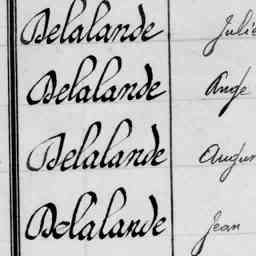 Delalande Julie
Delalande Ange
Delalande Augus
Delalande Jean